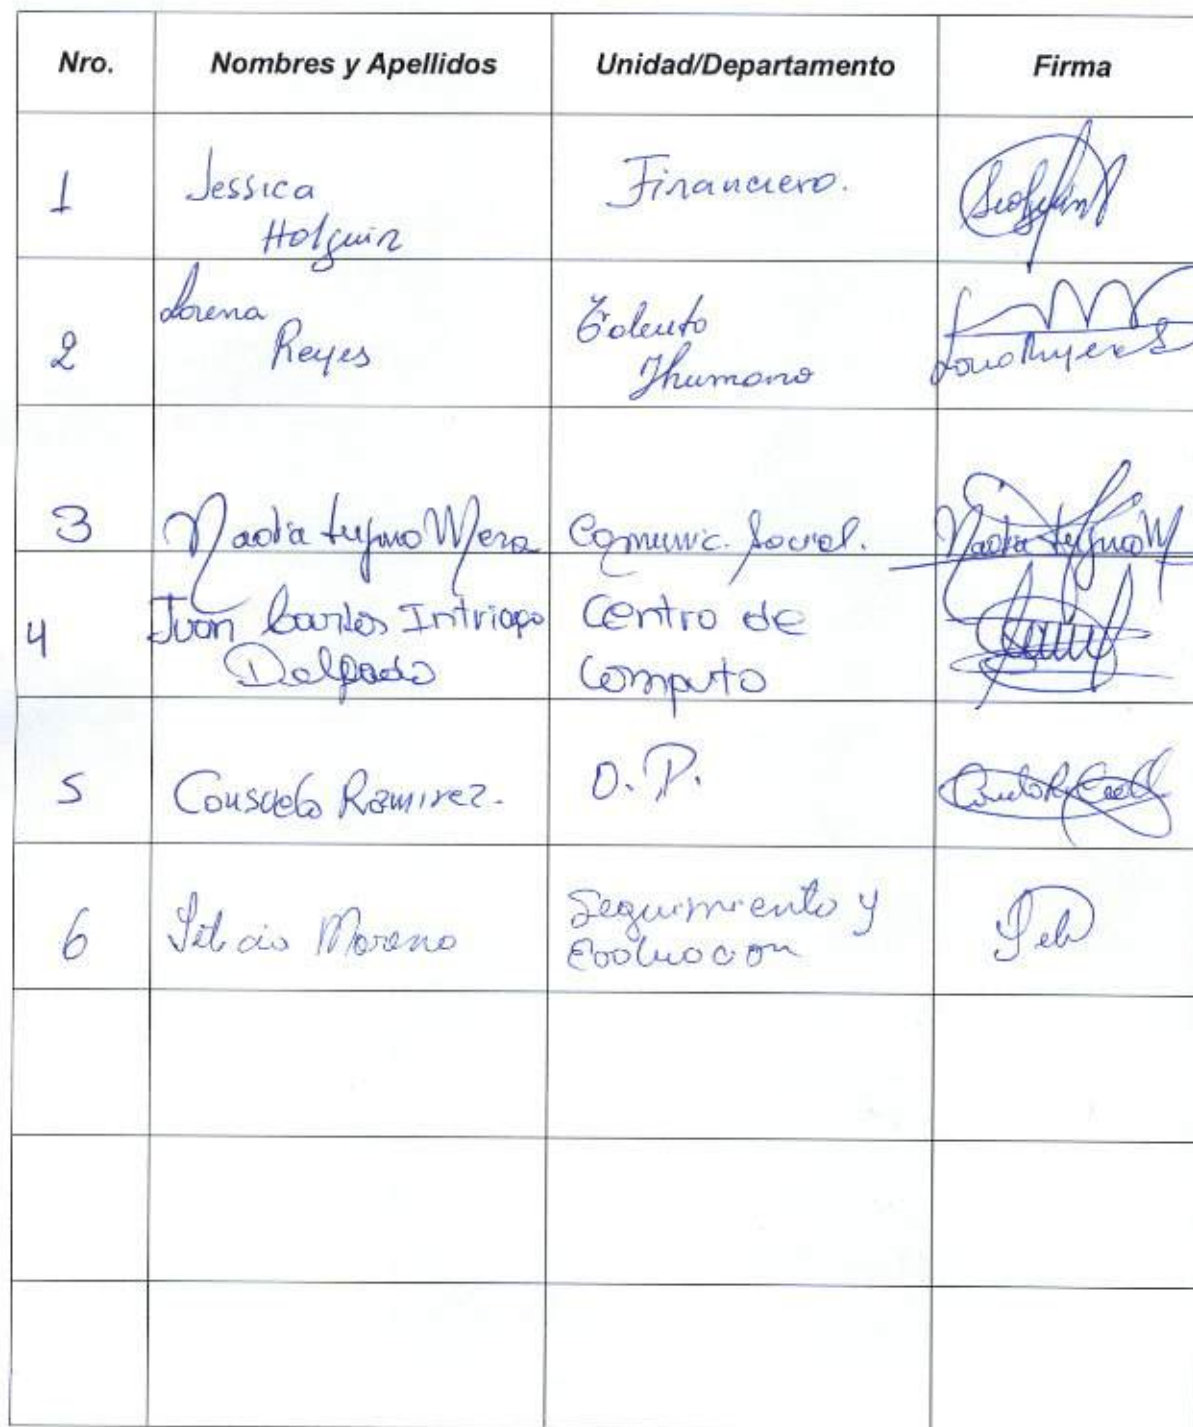 Nro. Nombres y Apellidos Unidad/Departamento Firma
1 Jessica Holguin Financiero.
2 Lorena Reyes Talento Humano
3 Nadia Mera Comunic. Social.
4 Juan Carlos Intriago Delgado Centro de Computo
5 Consuelo Ramirez. O.P.
6 Moreno Seguimiento y Evaluacion